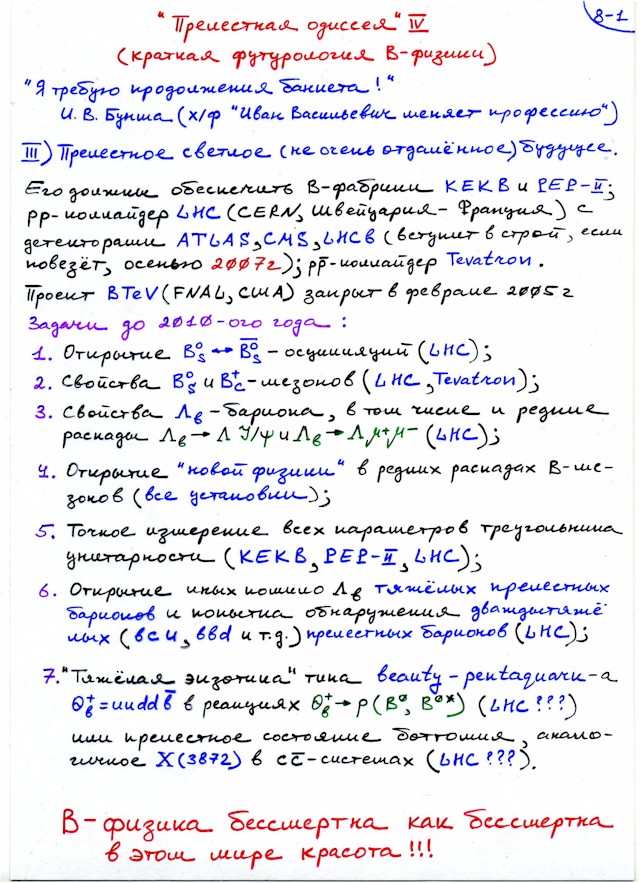 8-1
"Прелестная одиссея" IV
(краткая футурология B-физики)
"Я требую продолжения банкета!"
И. В. Бунша (х/ф "Иван Васильевич меняет профессию")
III) Прелестное светлое (не очень отдалённое) будущее.
Его должны обеспечить B-фабрики KEKB и PEP-II;
pp-коллайдер LHC (CERN, Швейцария - Франция) с
детекторами ATLAS, CMS, LHCb (вступит в строй, если
повезёт, осенью 2007г); pp̅-коллайдер Tevatron.
Проект BTeV (FNAL, США) закрыт в феврале 2005г
Задачи до 2010-ого года:
1. Открытие B⁰ₛ ↔ B̅⁰ₛ - осцилляций (LHC);
2. Свойства B⁰ₛ и B⁺c-мезонов (LHC, Tevatron);
3. Свойства Λb - бариона, в том числе и редкие
распады Λb → Λ J/ψ и Λb → Λ μ⁺μ⁻ (LHC);
4. Открытие "новой физики" в редких распадах B-ме-
зонов (все установки);
5. Точное измерение всех параметров треугольника
унитарности (KEKB, PEP-II, LHC);
6. Открытие иных помимо Λb тяжёлых прелестных
барионов и попытка обнаружения дваждытяжё
лых (bcu, bbd и т.д.) прелестных барионов (LHC);
7. "Тяжёлая экзотика" типа beauty-pentaquark-а
Θ⁺b = uudd b̅ в реакциях Θ⁺b → p(B⁰, B⁰*) (LHC ???)
или прелестное состояние боттомия, анало-
гичное X(3872) в cc̅-системах (LHC ???).
B-физика бессмертна как бессмертна
в этом мире красота!!!